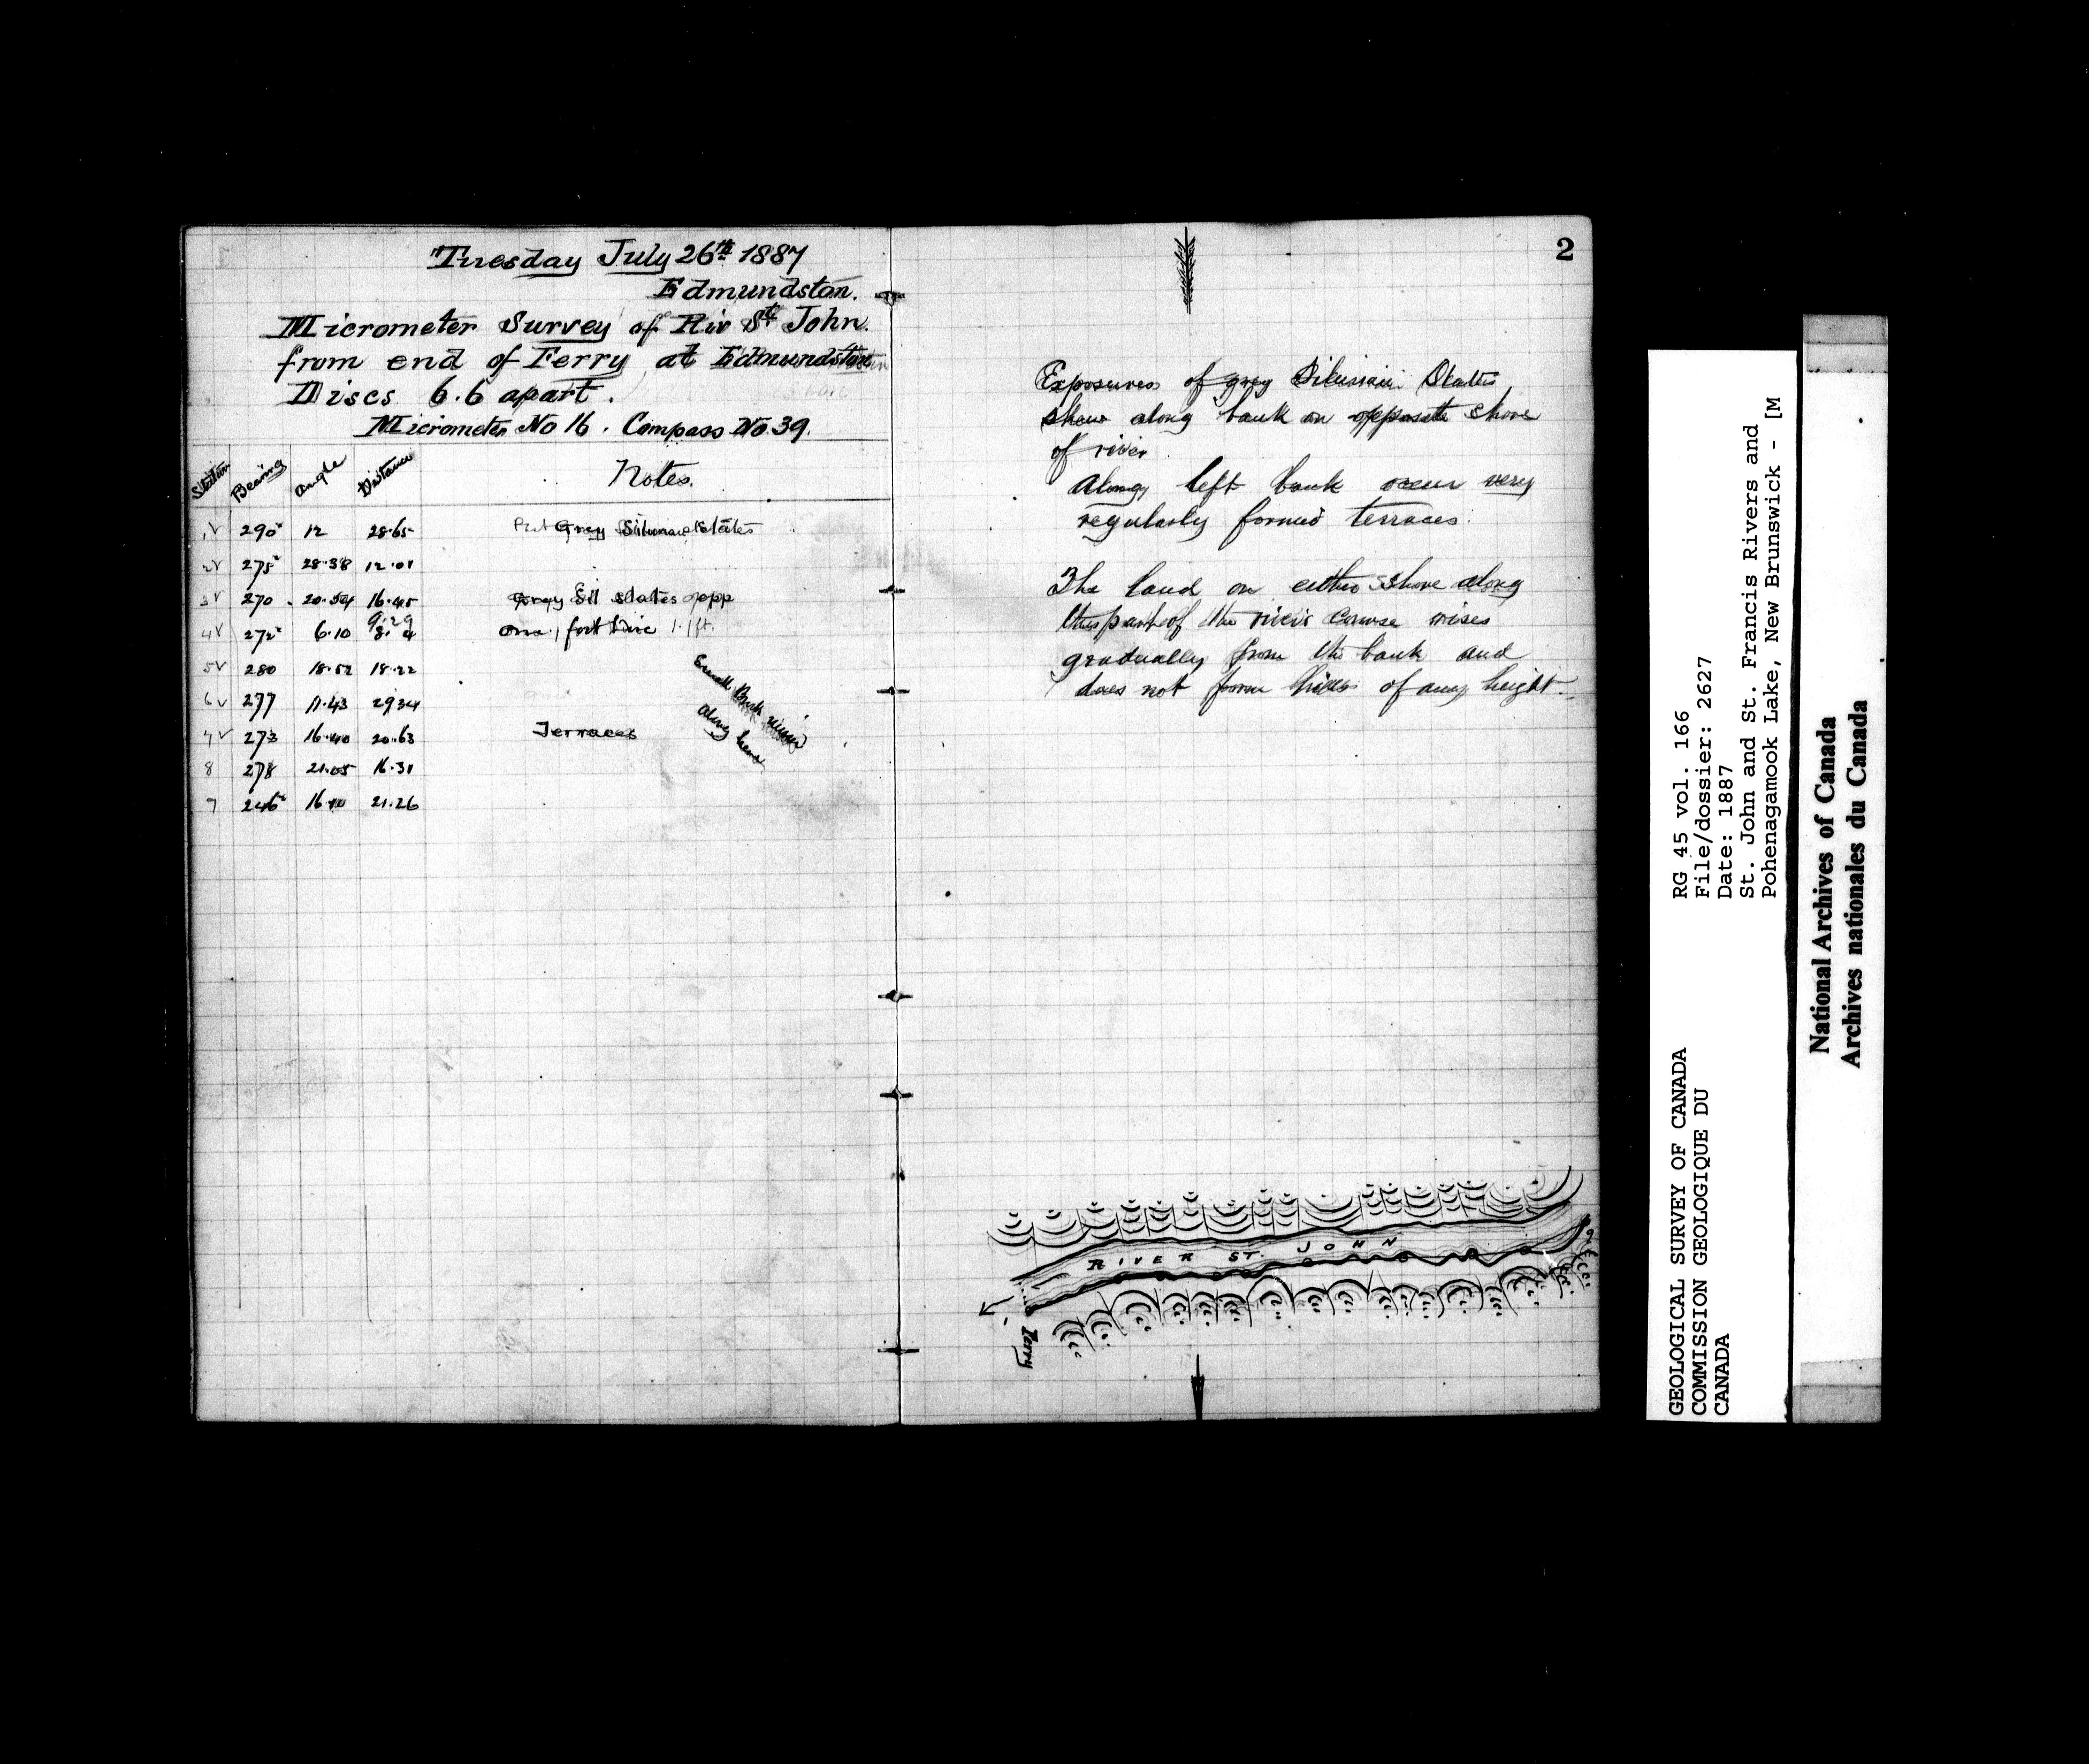 Tuesday July 26th 1887
Edmundston.
Micrometer Survey of Riv St John.
from end of Ferry at Edmundston
Discs 6.6 apart.
Micrometer No 16. Compass No. 39.
Station Bearing Angle Distance Notes.
1 290 12 28.65 Grey Silurian Slates
2 275 28.38 12.01
3 270 20.54 16.45 Grey Sil slates opp
4 272 6.10 9.29
5 280 18.52 18.22
6 277 11.43 29.34
7 273 16.40 20.63 Terraces
Small
along here
8 278 21.05 16.31
9 246 21.26
2
Exposures of grey Silurian Slates
show along bank on opposite shore
of river
Along left bank occur very
regularly formed terraces.
The land on either shore along
this part of the river's course rises
gradually from the bank and
does not form hills of any height.
RIVER ST. JOHN
Ferry
GEOLOGICAL SURVEY OF CANADA
COMMISSION GEOLOGIQUE DU
CANADA
RG 45 vol. 166
File/dossier: 2627
Date: 1887
St. John and St. Francis Rivers and
Pohenagamook Lake, New Brunswick - [M
National Archives of Canada
Archives nationales du Canada